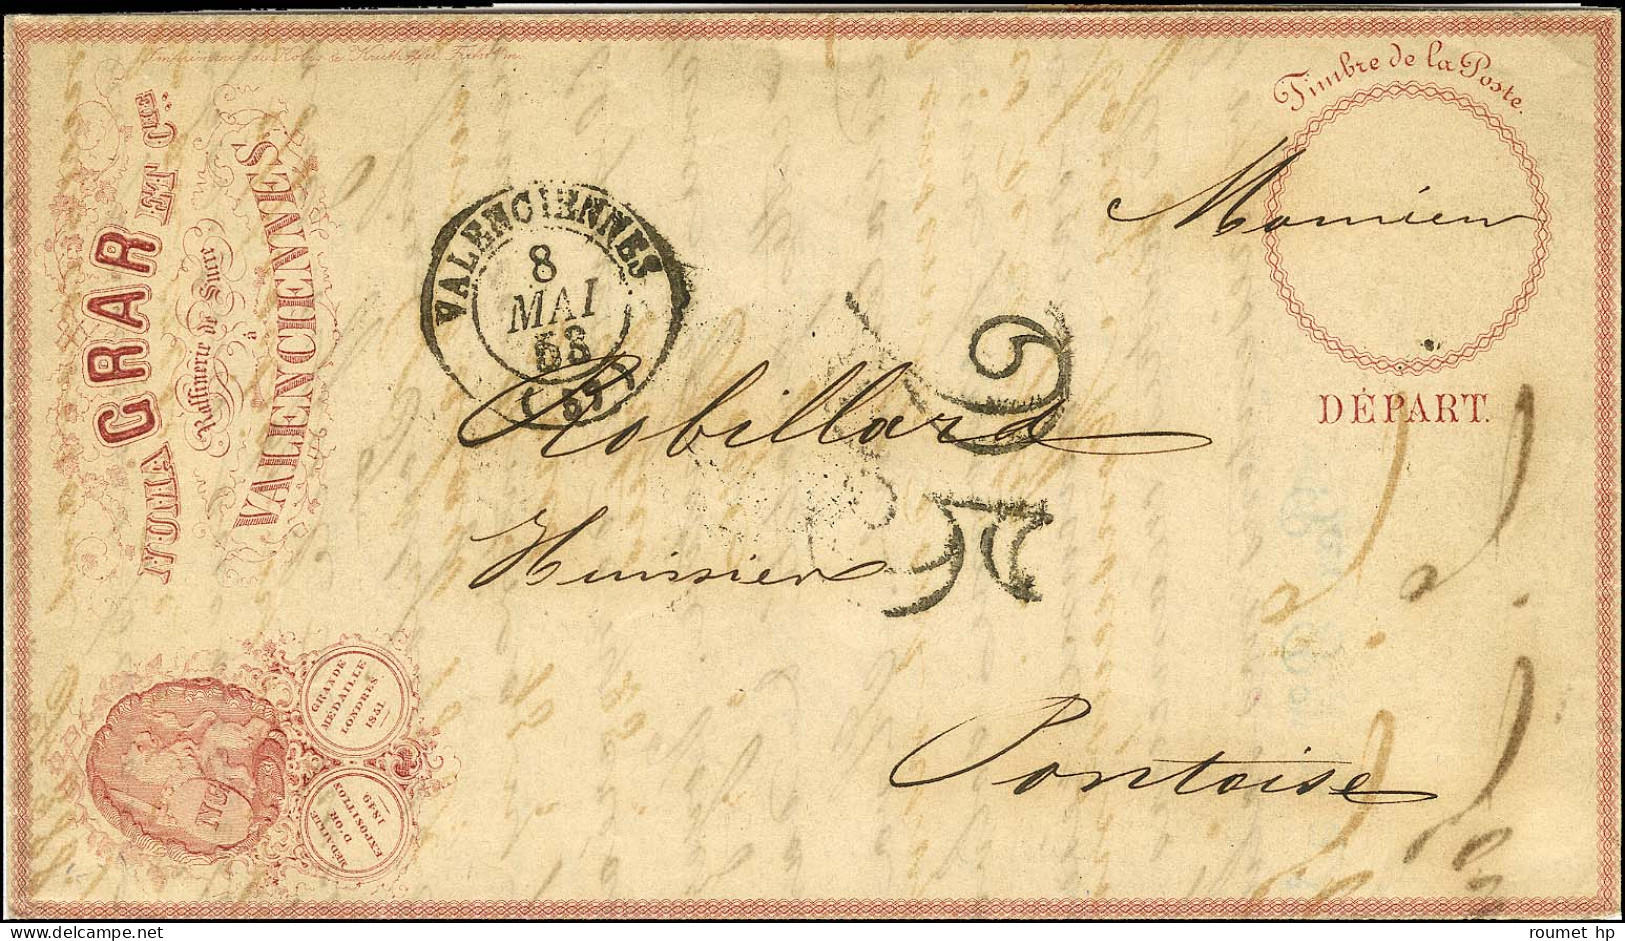 Timbre de la Poste.
DÉPART.
NUMA GRAR ET CIE.
Raffinerie de Sucre
à
VALENCIENNES
GRANDE
MÉDAILLE
LONDRES
1851
MÉDAILLE
D'OR
EXPOSITION
1849
NG
VALENCIENNES
8
MAI
58
(57)
Monsieur
Robillard
Huissier
Pontoise
roumet hp